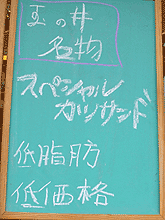 玉の井
名物
スペシャル
カツサンド!
低脂肪
低価格